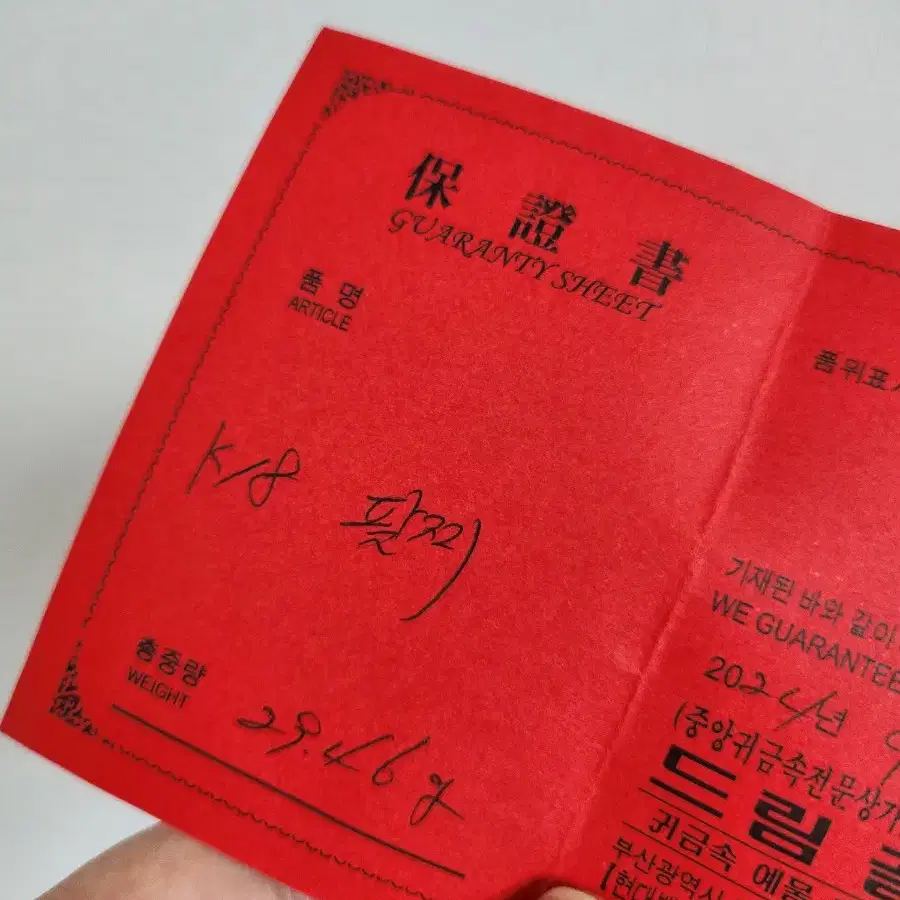 保證書
GUARANTY SHEET
품명
ARTICLE
K18 팔찌
총중량
WEIGHT
29.46g
품위표
기재된 바와 같이
WE GUARANTEE
2024년
(중앙귀금속전문상가
드림
귀금속 예물
부산광역시